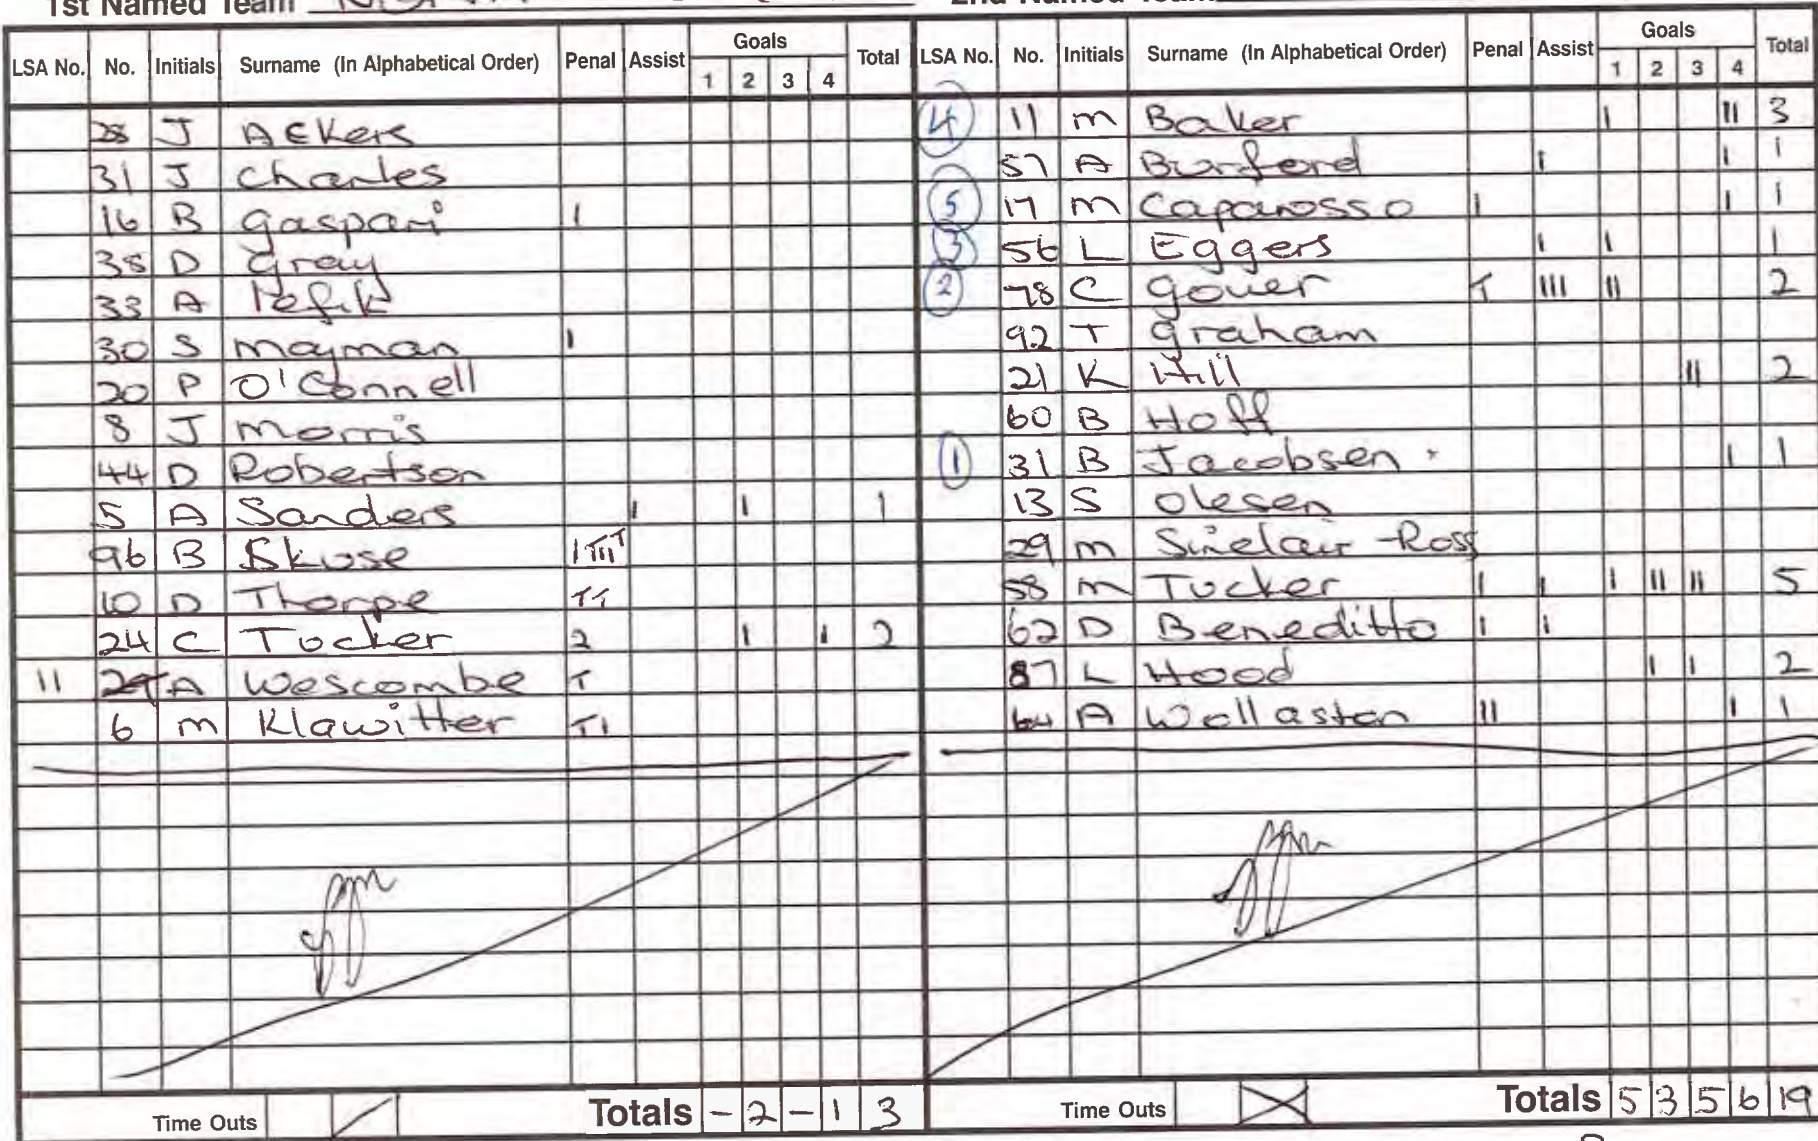 1st Named Team
LSA No. No. Initials Surname (In Alphabetical Order) Penal Assist Goals 1 2 3 4 Total
28 J Ackers
31 J Charles
16 B Gaspari I
38 D Gray
33 A Tefik
30 S Mayman I
20 P O'Connell
8 J Morris
44 D Robertson
5 A Sanders I I 1
96 B Skuse
10 D Thorpe TT
24 C Tucker 2 I I 2
11 A Wescombe T
6 M Klawitter TI
Time Outs Totals - 2 - 1 3
LSA No. No. Initials Surname (In Alphabetical Order) Penal Assist Goals 1 2 3 4 Total
4 11 M Baker I II 3
57 A Burford I I 1
5 17 M Caparosso I I 1
3 56 L Eggers I I 1
2 78 C Gouer T III II 2
92 T Graham
21 K Hill II 2
60 B Hoff
1 31 B Jacobsen I 1
13 S Olesen
29 M Sinclair-Ross
58 M Tucker I I I II II 5
62 D Beneditto I I
87 L Hood I I 2
64 A Wollaston II I 1
Time Outs Totals 5 3 5 6 19